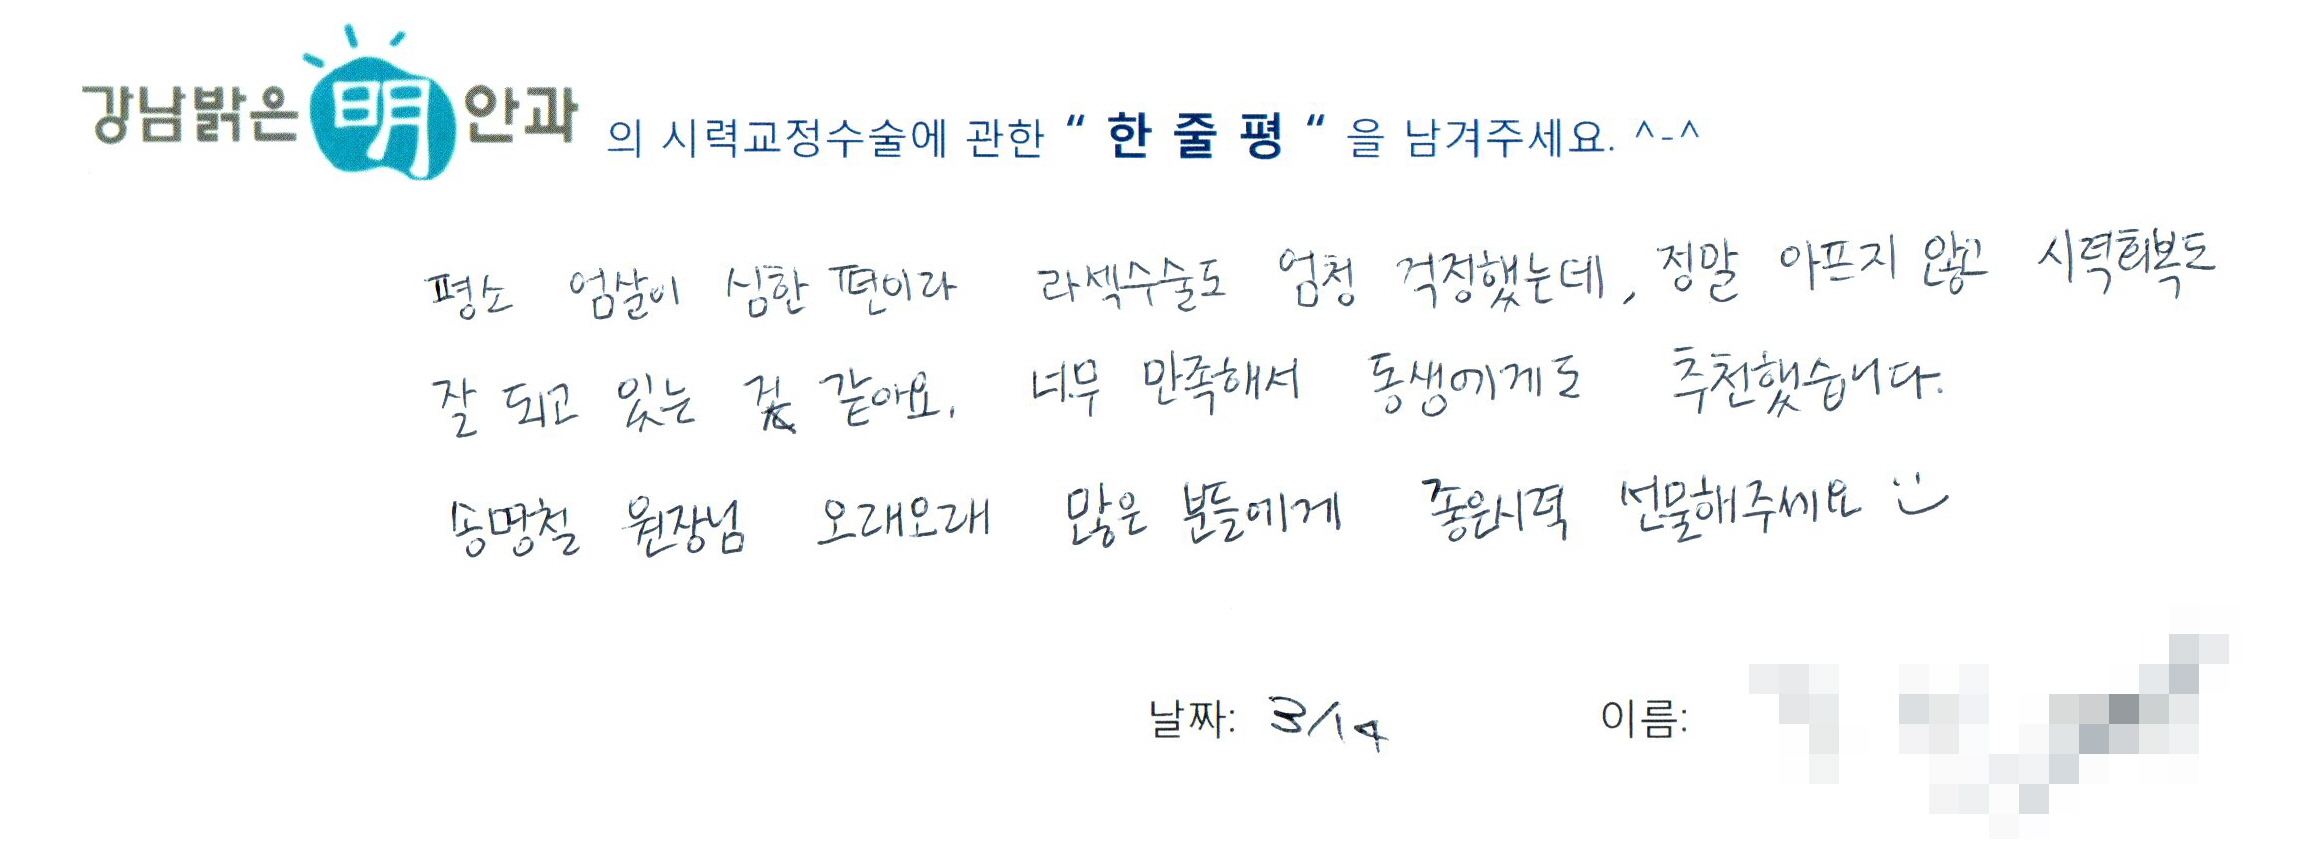 강남밝은明안과 의 시력교정수술에 관한 “ 한 줄 평 “ 을 남겨주세요. ^-^
평소 엄살이 심한 편이라 라섹수술도 엄청 걱정했는데, 정말 아프지 않고 시력회복도
잘 되고 있는 것 같아요. 너무 만족해서 동생에게도 추천했습니다.
송명철 원장님 오래오래 많은 분들에게 좋은시력 선물해주세요
날짜: 3/14 이름: